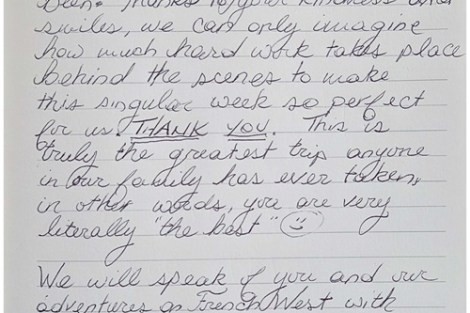 been. Thanks to your kindness and
smiles, we can only imagine
how much hard work takes place
behind the scenes to make
this singular week so perfect
for us. THANK YOU. This is
truly the greatest trip anyone
in our family has ever taken,
in other words, you are very
literally "the best" ☺
We will speak of you and our
adventures on French West with